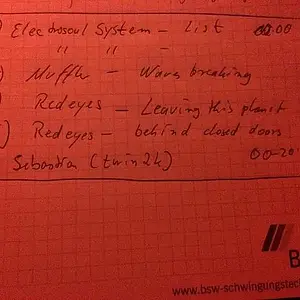 Electrosoul System – List 00:00
" " –
) Muffler – Wave breaking
) Redeyes – Leaving this planet
) Redeyes – behind closed doors
Sebastian (twin2k) 00-20
B
www.bsw-schwingungstec